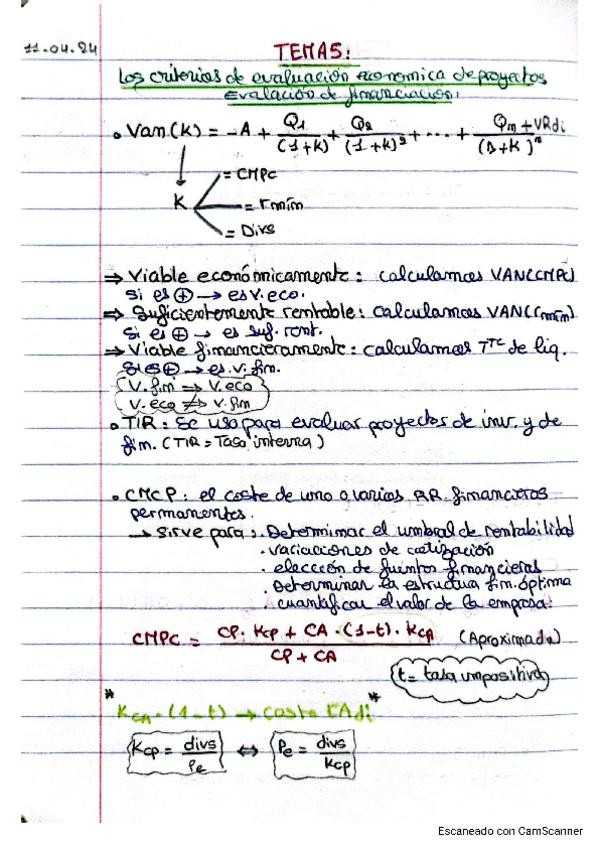 11.04.24
TEMA5:
Los criterios de evaluación economica de proyectos
Evalación de financiación.
• Van(K) = -A + Q1/(1+K) + Q2/(1+K)² + ... + Qn+VRdi/(1+K)ⁿ
K
= CMPC
= rmín
= Divs
⇒ Viable económicamente: calculamos VAN(CMPC)
si es ⊕ → es v. eco.
⇒ Suficientemente rentable: calculamos VAN(rmín)
si es ⊕ → es suf. rent.
⇒ Viable financieramente: calculamos TTC de liq.
si es ⊕ → es. v. fin.
V. fin ⇒ V. eco
V. eco ⇏ V. fin
• TIR: Se usa para evaluar proyectos de inv. y de
fin. (TIR = Tasa interna)
• CMCP: el coste de uno o varios RR. financieros
permanentes.
→ sirve para: · Determinar el umbral de rentabilidad
· variaciones de cotización
· elección de fuentes financieras
· Determinar la estructura fin. óptima
· cuantificar el valor de la empresa.
CMPC = CP · Kcp + CA · (1-t) · KCA / CP + CA (Aproximada)
t = tasa impositiva
* *
KCA · (1-t) → coste CAdi
Kcp = divs/Pe ⇔ Pe = divs/Kcp
Escaneado con CamScanner